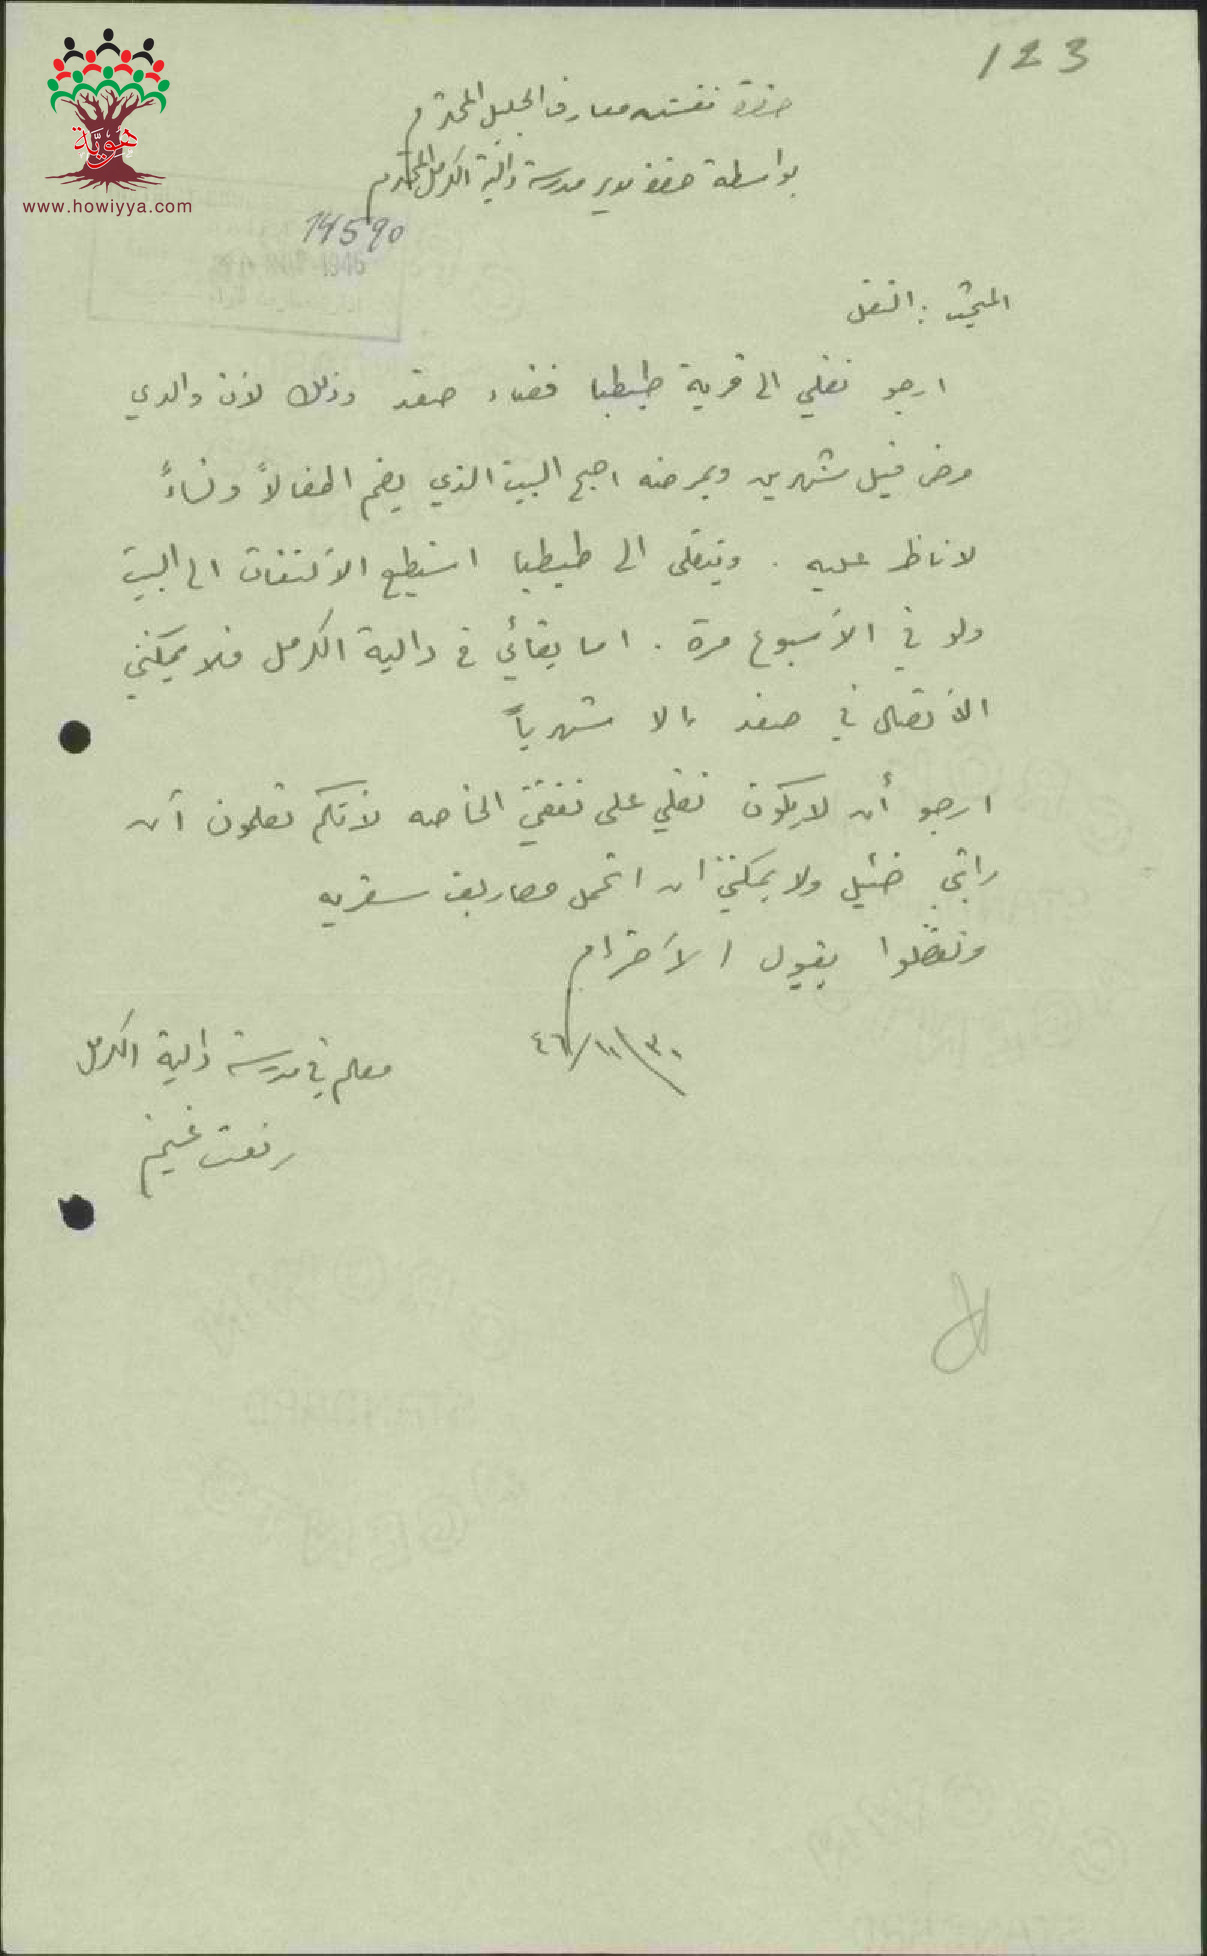 123
حضرة مفتش معارف الجليل المحترم
بواسطة حضرة مدير مدرسة دالية الكرمل المحترم
هوية
www.howiyya.com
14590
1946
المبحث : النقل
ارجو نقلي الى قرية طيطبا قضاء صفد وذلك لأن والدي
مرض قبل شهرين وبمرضه اصبح البيت الذي يضم اطفالاً ونساءً
لا ناظر عليه . وبنقلي الى طيطبا استطيع الألتفات الى البيت
ولو في الأسبوع مرة . اما بقائي في دالية الكرمل فلا يمكنني
الأتصال في صفد إلا شهرياً
ارجو أن لا يكون نقلي على نفقتي الخاصه لأنكم تعلمون أن
راتبي ضئيل ولا يمكنني ان اتحمل مصاريف سفريه
وتفضلوا بقبول الأحترام
٣٠/١١/٤٦
معلم في مدرسة دالية الكرمل
رفعت غنيم
STANDARD